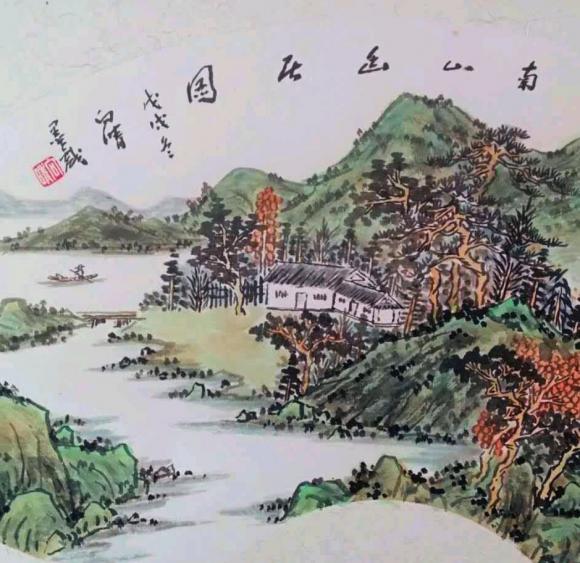 南山幽居图
戊戌冬
向清
墨戏